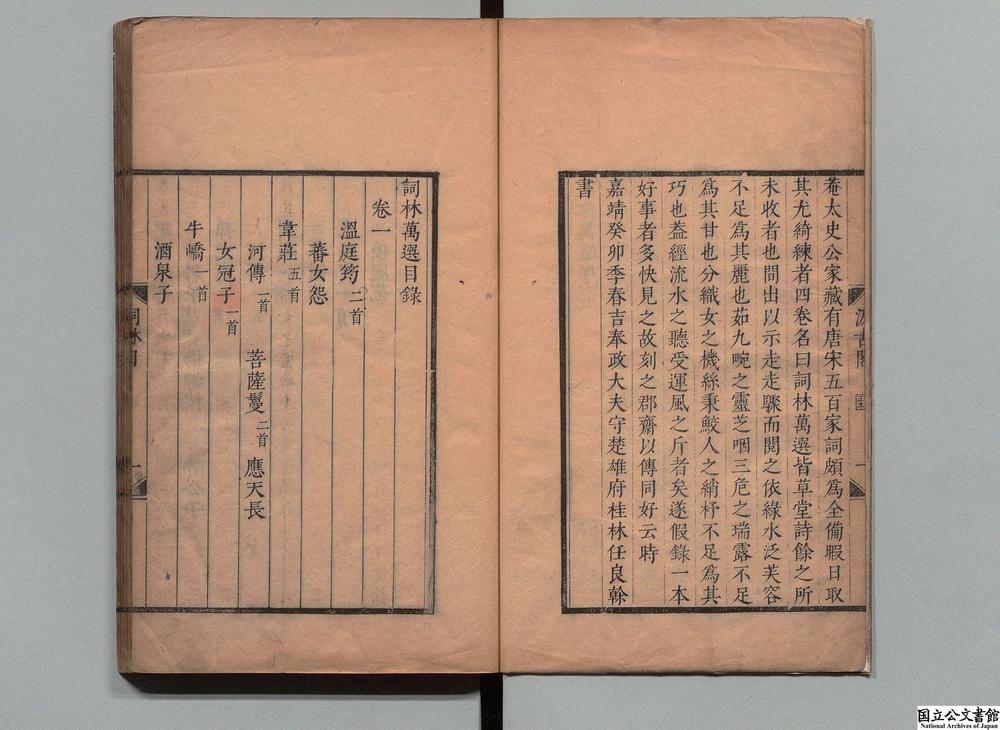 菴太史公家藏有唐宋五百家詞頗爲全備暇日取
其尤綺練者四卷名曰詞林萬選皆草堂詩餘之所
未收者也間出以示走走驟而閱之依綠水泛芙容
不足爲其麗也茹九畹之靈芝咽三危之瑞露不足
爲其甘也分織女之機絲秉鮫人之綃杼不足爲其
巧也葢經流水之聽受運風之斤者矣遂假錄一本
好事者多快見之故刻之郡齋以傳同好云時
嘉靖癸卯季春吉奉政大夫守楚雄府桂林任良榦
書
詞林萬選目錄
卷一
溫庭筠二首
蕃女怨
韋莊五首
河傳一首 菩薩鬘二首 應天長
女冠子一首
牛嶠一首
酒泉子
国立公文書館
National Archives of Japan